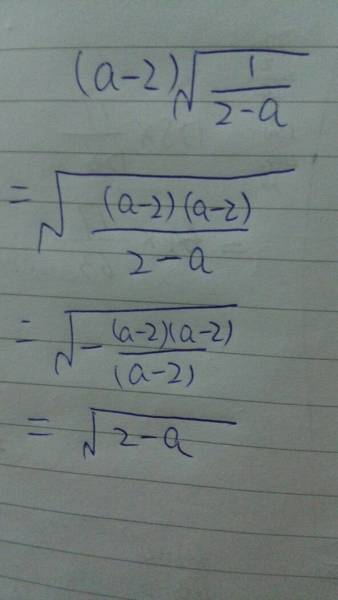 (a-2)√(1/(2-a))
=√((a-2)(a-2)/(2-a))
=√(-(a-2)(a-2)/(a-2))
=√(2-a)